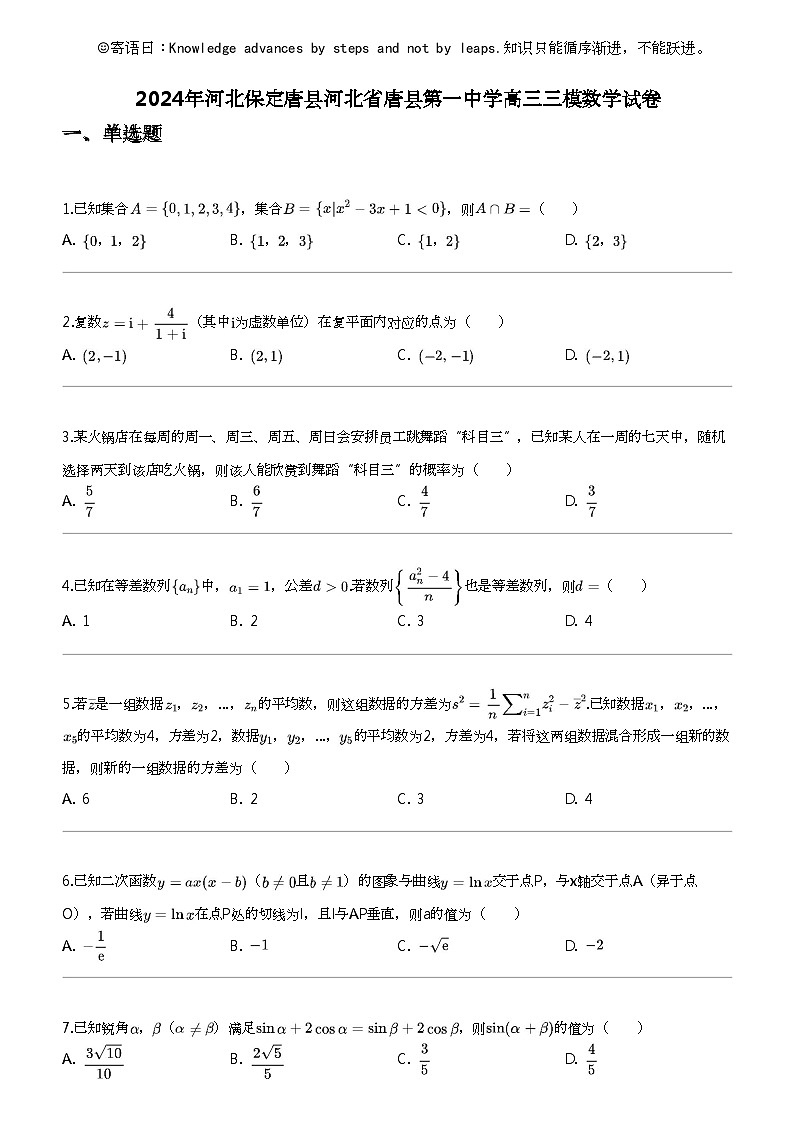 ☺寄语日:Knowledge advances by steps and not by leaps.知识只能循序渐进，不能跃进。
2024年河北保定唐县河北省唐县第一中学高三三模数学试卷
一、单选题
1.已知集合A = {0, 1, 2, 3, 4}，集合B = {x|x² − 3x + 1 < 0}，则A ∩ B =（　　）
A. {0，1，2} B. {1，2，3} C. {1，2} D. {2，3}
2.复数z = i + 4/(1 + i)（其中i为虚数单位）在复平面内对应的点为（　　）
A. (2, −1) B. (2, 1) C. (−2, −1) D. (−2, 1)
3.某火锅店在每周的周一、周三、周五、周日会安排员工跳舞蹈“科目三”，已知某人在一周的七天中，随机
选择两天到该店吃火锅，则该人能欣赏到舞蹈“科目三”的概率为（　　）
A. 5/7 B. 6/7 C. 4/7 D. 3/7
4.已知在等差数列{aₙ}中，a₁ = 1，公差d > 0.若数列{(aₙ² − 4)/n}也是等差数列，则d =（　　）
A. 1 B. 2 C. 3 D. 4
5.若z̄是一组数据z₁，z₂，…，zₙ的平均数，则这组数据的方差为s² = 1/n ∑ⁿᵢ₌₁ zᵢ² − z̄².已知数据x₁，x₂，…，
x₅的平均数为4，方差为2，数据y₁，y₂，…，y₅的平均数为2，方差为4，若将这两组数据混合形成一组新的数
据，则新的一组数据的方差为（　　）
A. 6 B. 2 C. 3 D. 4
6.已知二次函数y = ax(x − b)（b ≠ 0且b ≠ 1）的图象与曲线y = ln x交于点P，与x轴交于点A（异于点
O），若曲线y = ln x在点P处的切线为l，且l与AP垂直，则a的值为（　　）
A. −1/e B. −1 C. −√e D. −2
7.已知锐角α，β（α ≠ β）满足sin α + 2 cos α = sin β + 2 cos β，则sin(α + β)的值为（　　）
A. 3√10/10 B. 2√5/5 C. 3/5 D. 4/5